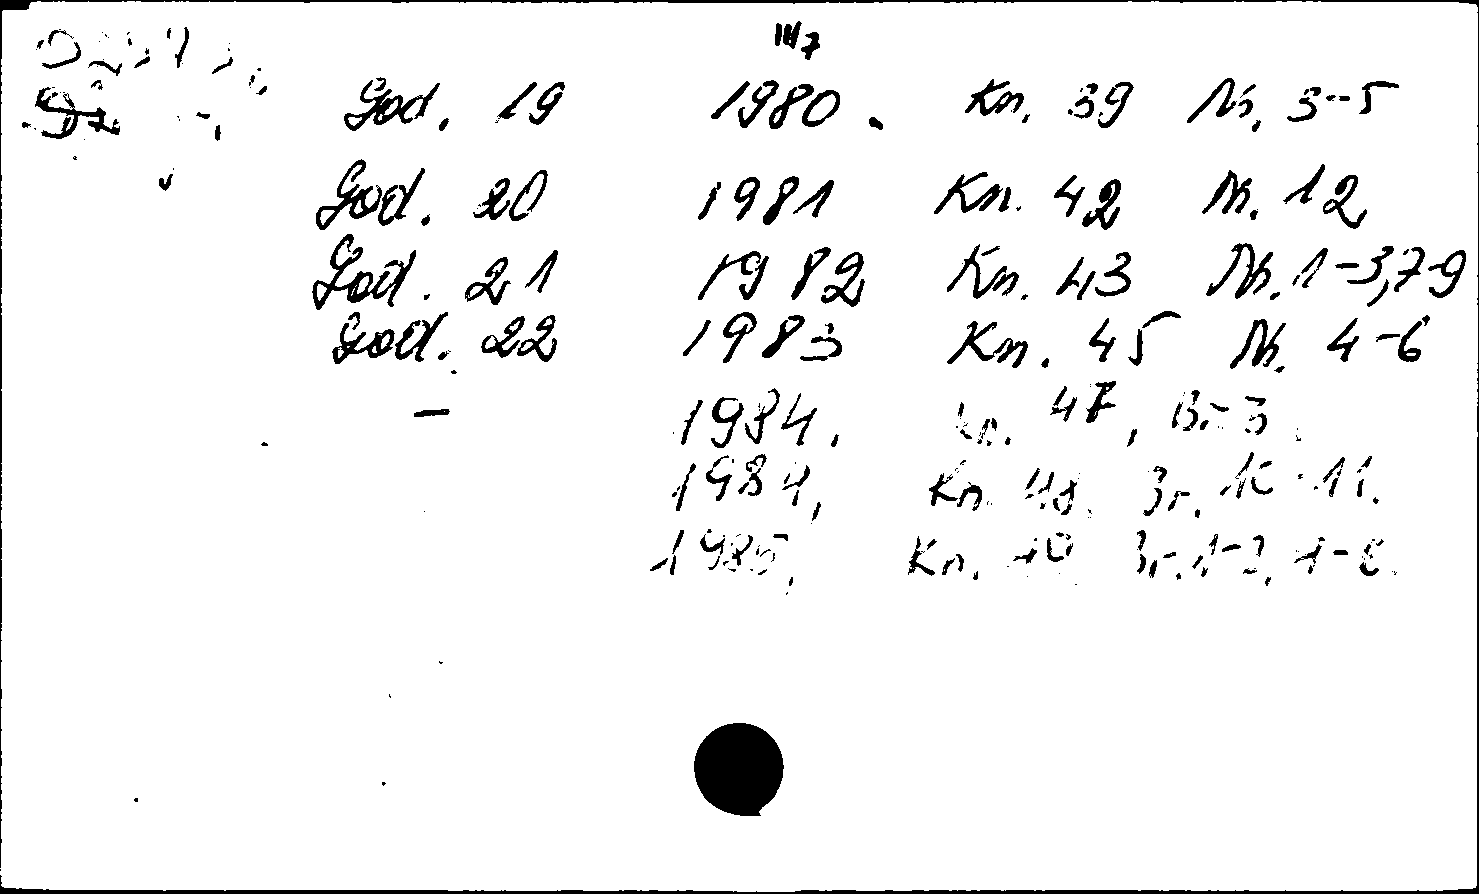 III/7
God. 19 1980. Kn. 39 Nr. 3-5
God. 20 1981 Kn. 42 Nr. 12
God. 21 1982 Kn. 43 Nr. 1-3, 7-9
God. 22 1983 Kn. 45 Nr. 4-6
— 1984, Kn. 47,
1984, Kn. 48. Br. 10-11.
1985, Kn.